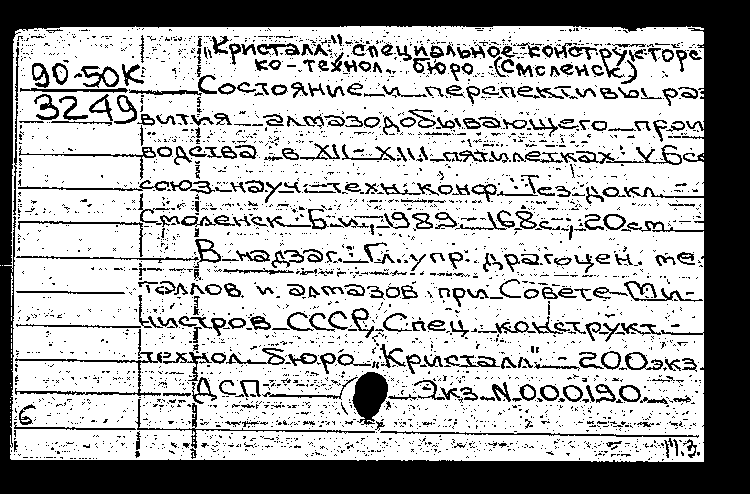 „Кристалл", специальное конструкторс
ко-технол. бюро (Смоленск)
90-50К
3249
Состояние и перспективы раз
вития алмазодобывающего прои
водства в XII-XIII пятилетках: V Всe
союз. науч.-техн. конф.: Тез. докл. -
Смоленск: Б.и., 1989. - 168с.; 20см. -
В надзаг.: Гл. упр. драгоцен. ме-
таллов и алмазов при Совете Ми-
нистров СССР, Спец. конструкт.-
технол. бюро „Кристалл" - 200экз.
ДСП Экз. N 000190
6